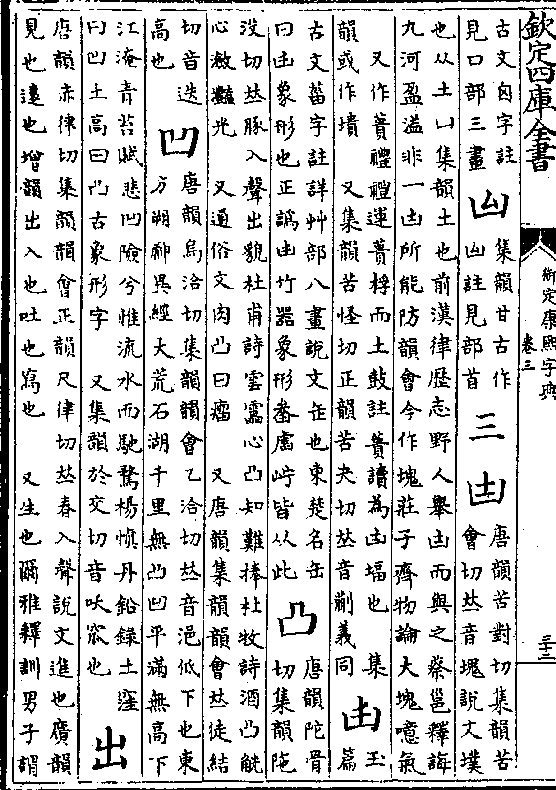 欽定四庫全書
御定康熙字典
卷三
三十二
古文囟字註
見口部三畫
集韻甘古作
註見部首
三
凷
唐韻苦對切集韻苦
會切𠀤音塊說文墣
也从土凵集韻土也前漢律歷志野人舉凷而與之蔡邕釋誨
九河盈溢非一凷所能防韻會今作塊莊子齊物論大塊噫氣
又作蕢禮禮運蕢桴而土鼓註蕢讀為凷堛也 集
韻或作墤 又集韻苦怪切正韻苦夬切𠀤音蒯義同
玉
篇
古文甾字註詳艸部八畫說文缶也東楚名缶
曰甶象形也正譌由竹器象形畚皆从此
凸
唐韻陀骨
切集韻陁
沒切𠀤豚入聲出貌杜甫詩雲靁心凸知難捧杜牧詩酒凸觥
心激灩光 又通俗文肉凸曰瘤 又唐韻集韻韻會𠀤徒結
切音迭
高也
凹
唐韻烏洽切集韻韻會乙洽切𠀤音浥低下也東
方朔神異經大荒石湖千里無凸凹平滿無高下
江淹青苔賦悲凹險兮惟流水而馳騖楊慎丹鉛錄土窪
曰凹土高曰凸古象形字 又集韻於交切音㕭窊也
出
唐韻赤律切集韻韻會正韻尺律切𠀤春入聲說文進也廣韻
見也遠也增韻出入也吐也寫也 又生也爾雅釋訓男子謂